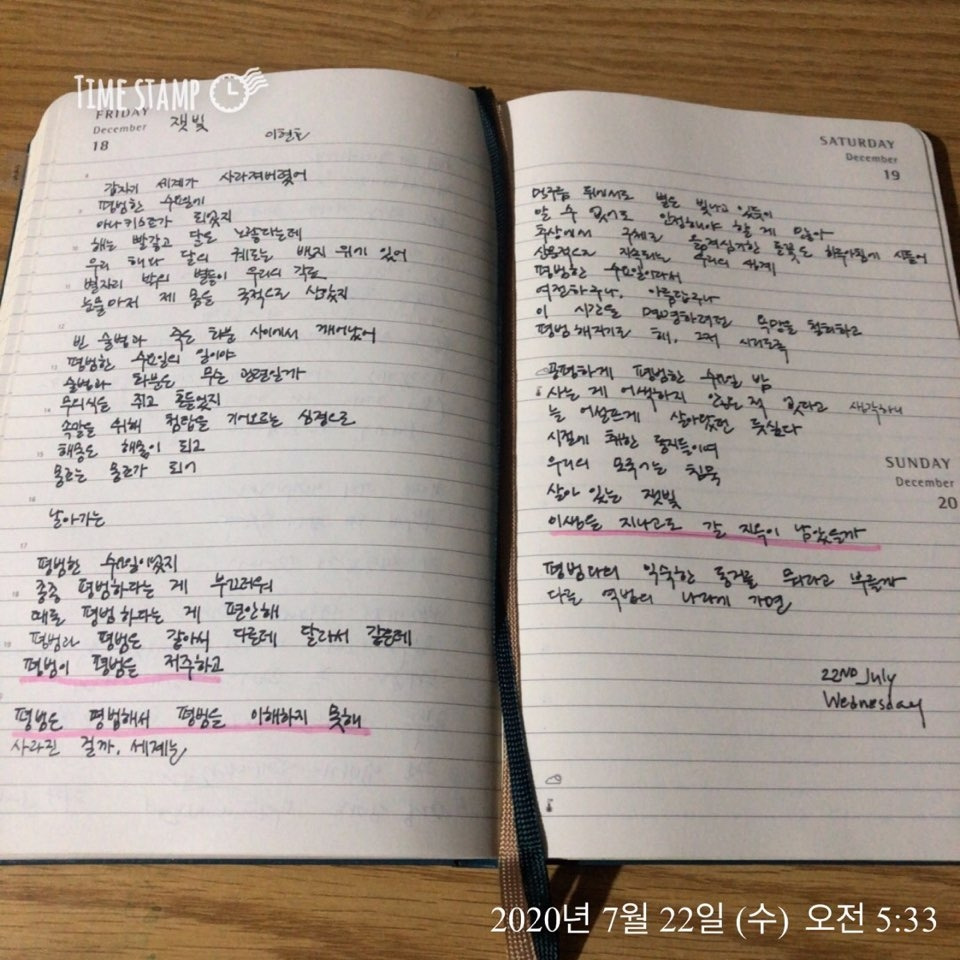 TIME STAMP
FRIDAY
December
18
잿빛
이현호
갑자기 세계가 사라져버렸어
평범한 수요일에
아나키스트가 되었지
해는 빨갛고 달은 노랗다는데
우리 해와 달의 궤도는 배낭 위가 있어
별자리 밖의 별들이 우리의 각도
눈물마저 제 몸을 국적으로 삼았지
빈 술병과 죽은 화분 사이에서 깨어났어
평범한 수요일의 일이야
술병과 화분은 무슨 관련일까
무의식을 쥐고 흔들었지
속말을 위해 첨탑을 기어오르는 심정으로
해충은 해충이 되고
용도는 용도가 되어
날아가는
평범한 수요일이었지
종종 평범하다는 게 부끄러워
때론 평범하다는 게 편안해
평범과 평범은 같아서 다른데 달라서 같은데
평범이 평범을 저주하고
평범은 평범해서 평범을 이해하지 못해
사라진 걸까, 세계는
SATURDAY
December
19
먹구름 뒤에서도 별은 빛나고 있듯이
알 수 없어도 인정해야 할 게 많아
추상에서 구체로 들꽃은 하루아침에 시들어
실용적으로 지속되는 우리의 쌍계
평범한 수요일이라서
여전하구나, 아름답구나
이 시간을 명명하려던 욕망을 철회하고
평범해지기로 해, 그저 시리도록
공평하게 평범한 수요일 밤
사는 게 어색하지 않은 적 있다고 생각하니
늘 어설프게 살아왔던 듯싶다
시절에 취한 동지들이여
우리의 모국어는 침묵
살아 있는 잿빛
SUNDAY
December
20
이생을 지나고도 갈 지옥이 남았을까
평범다의 익숙한 동거를 뭐라고 부를까
다른 역법의 나라에 가면
22ND July
Wednesday
2020년 7월 22일 (수) 오전 5:33